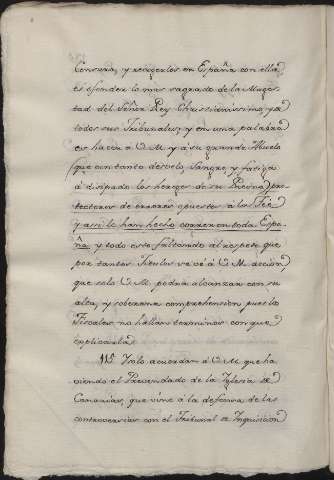 Censura, y recogerlos en España con ella,
es ofender lo mas sagrado de la Mages-
tad del Señor Rey Christianissimo, y a
todos sus Tribunales; y en una palabra
es hacer a V.M. y a su grande Abuelo
(que con tanto desvelo, sangre, y fatiga
a disipado los hereges de su Reyno) pro-
tectores de errores opuestos a la Fée
y assi lo han hecho correr en toda Espa-
ña, y todo esto faltando al respeto que
por tantos titulos se deve a V.M. accion
que solo V.M. podrá alcanzar con su
alta, y soberana comprehension pues los
Fiscales no hallan terminos con que
explicarla.
115 Y solo acuerdan a V.M. que ha-
viendo el Prevendado de la Iglesia de
Canarias, que vino á la defensa de las
controversias con el Tribunal de Inquisicion